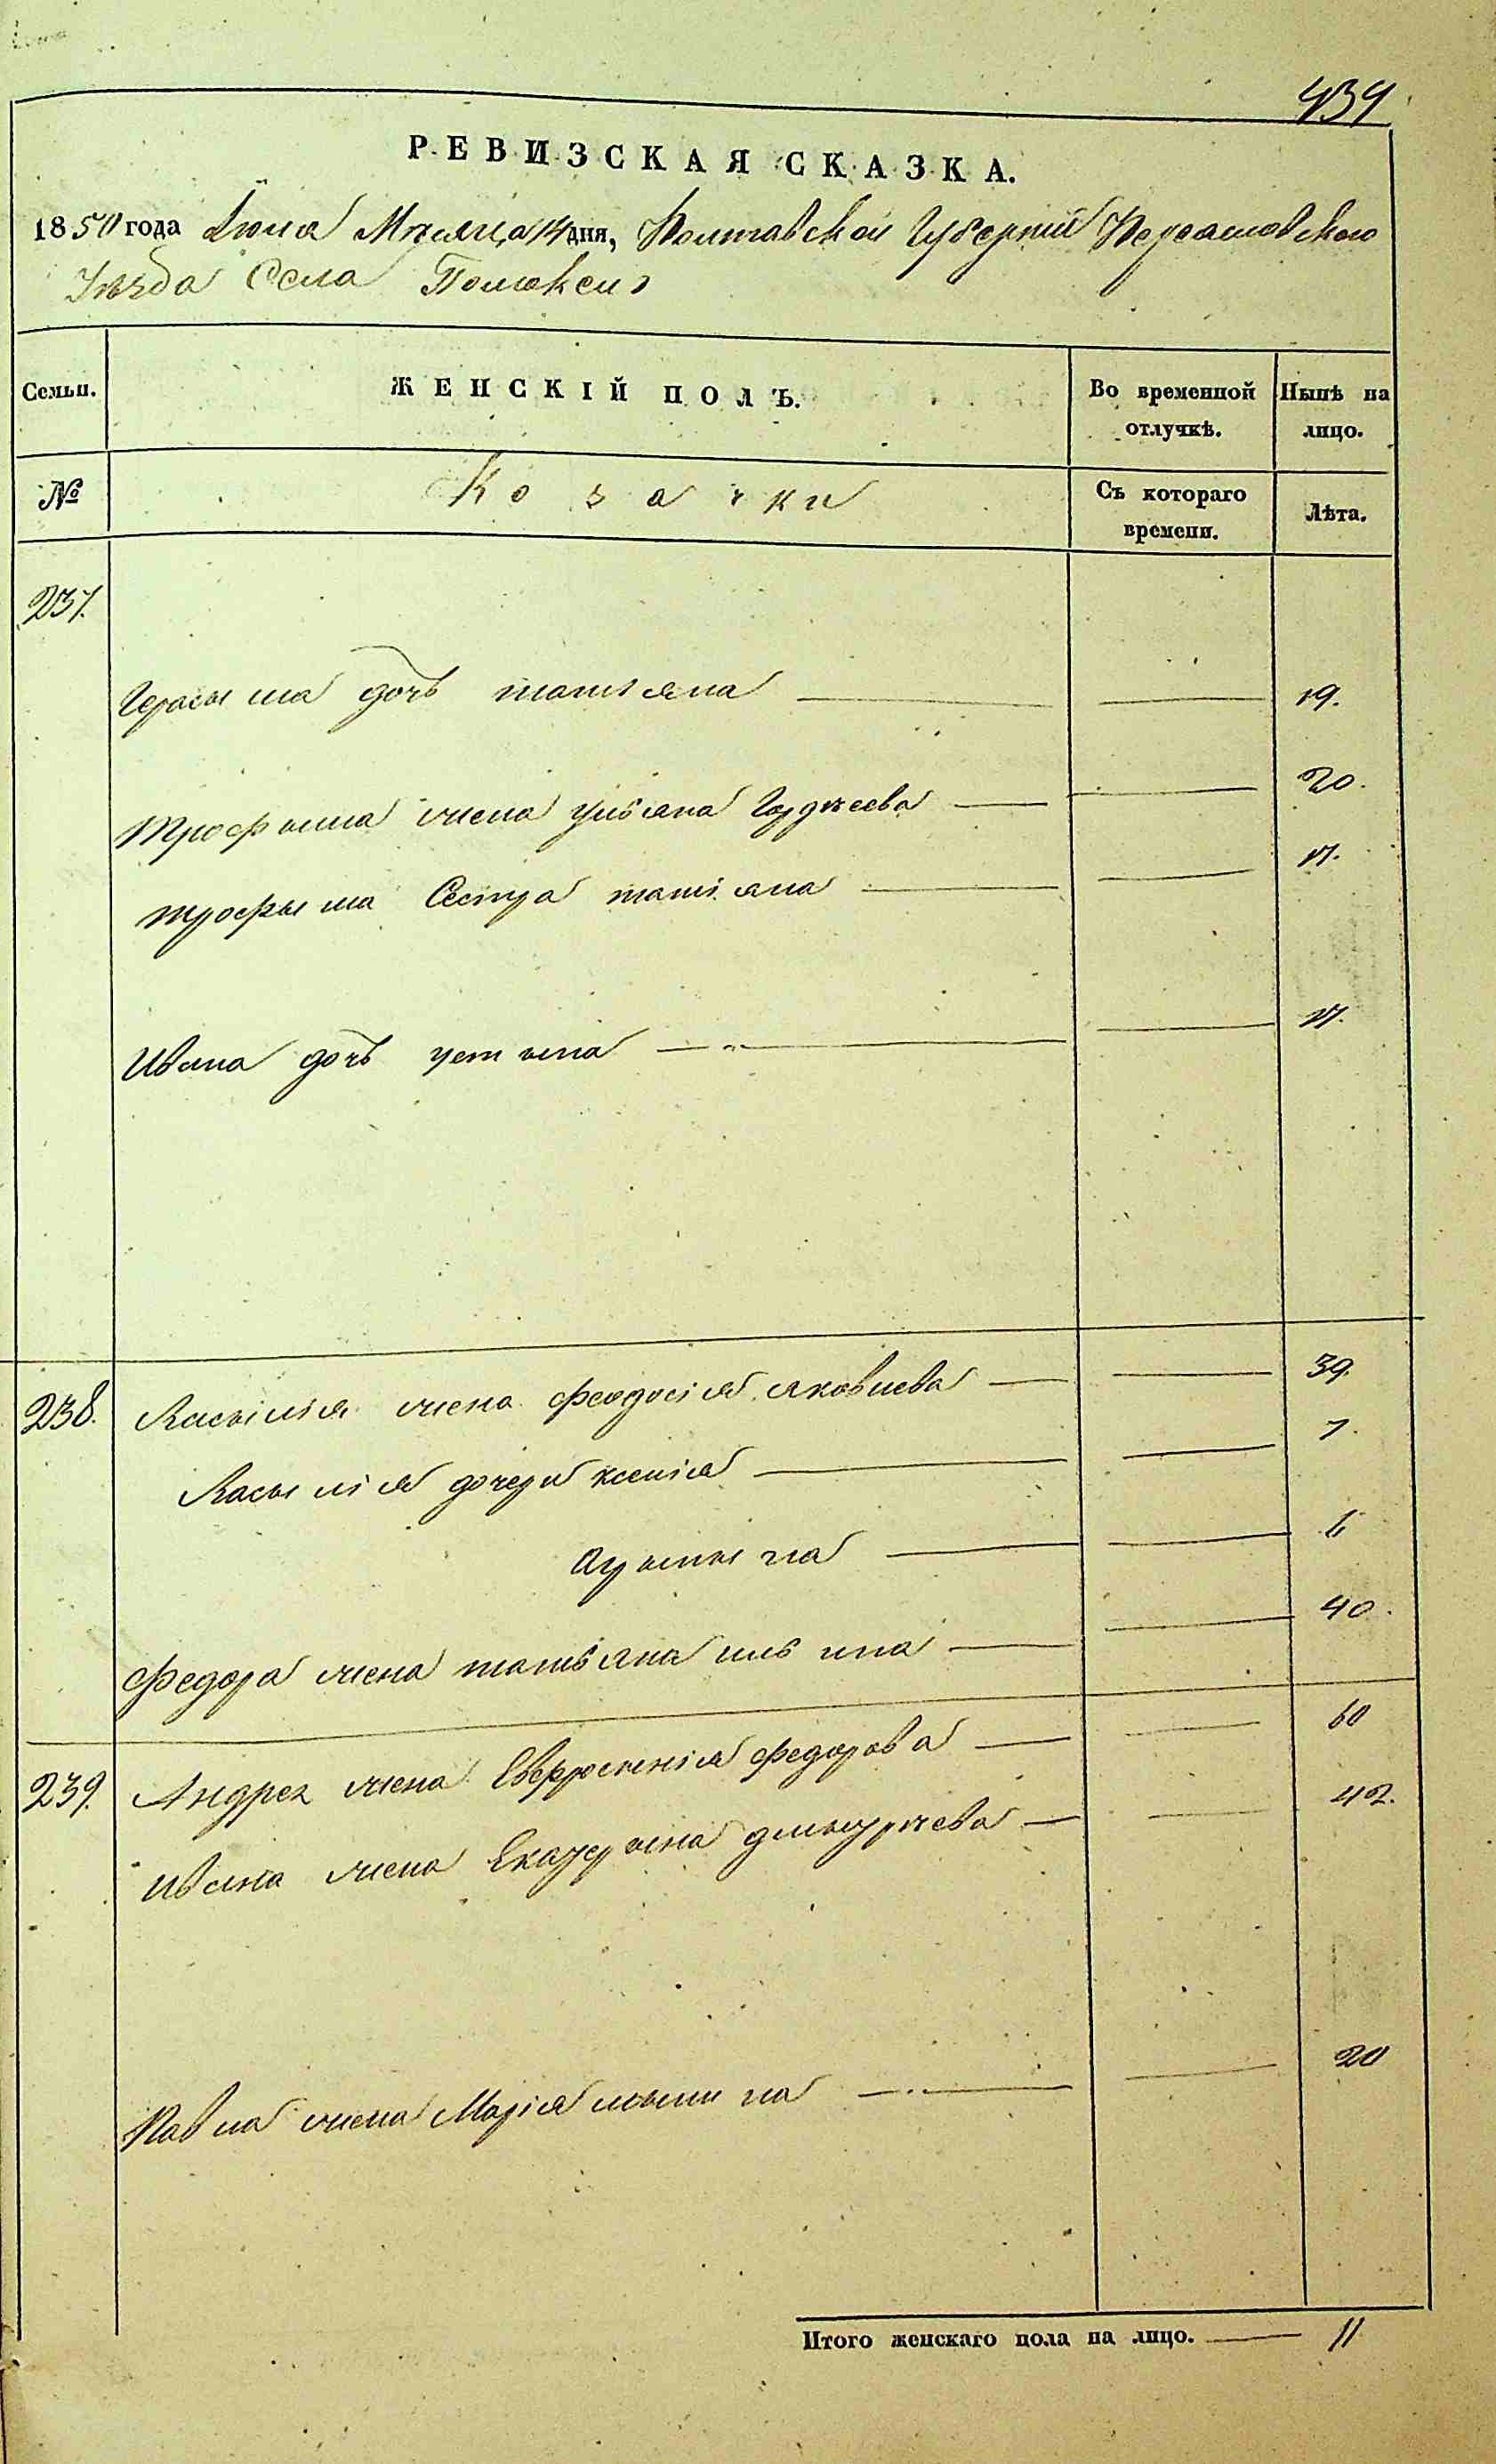 434
РЕВИЗСКАЯ СКАЗКА.
1850 года Іюня Месяца 14 дня, Полтавской Губерніи Переяславского
Уезда Села Помоклей
Семьи.
ЖЕНСКІЙ ПОЛЪ.
Во временной отлучкѣ.
Нынѣ на лицо.
№
Козачки
Съ котораго времени.
Лѣта.
237.
Герасыма дочь татияна 19.
трофыма жена улияна Гордѣева 20.
трофыма Сестра татияна 17.
Ивана дочь устына 17.
238. Васылія жена феодосія яковлева 39.
Васылія дочери ксенія 7.
Арыны на 6
Федора жена татьяна ильина 40.
239. Андрея жена Евфросенія федорова 60
Ивана жена Екатерына дмытріева 42.
Павла жена Марія 20
Итого женскаго пола на лицо. 11